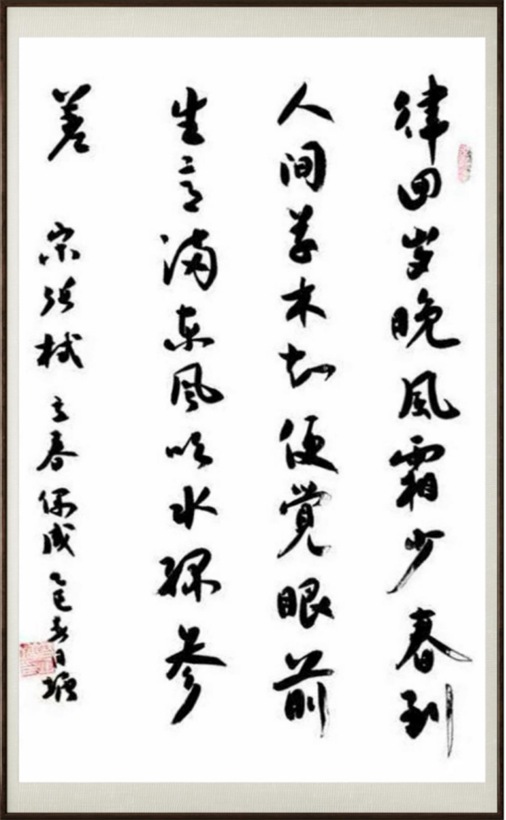 律回岁晚风霜少春到
人间草木知便觉眼前
生意满东风吹水绿参
差 宋张栻立春偶成 乙巳春日